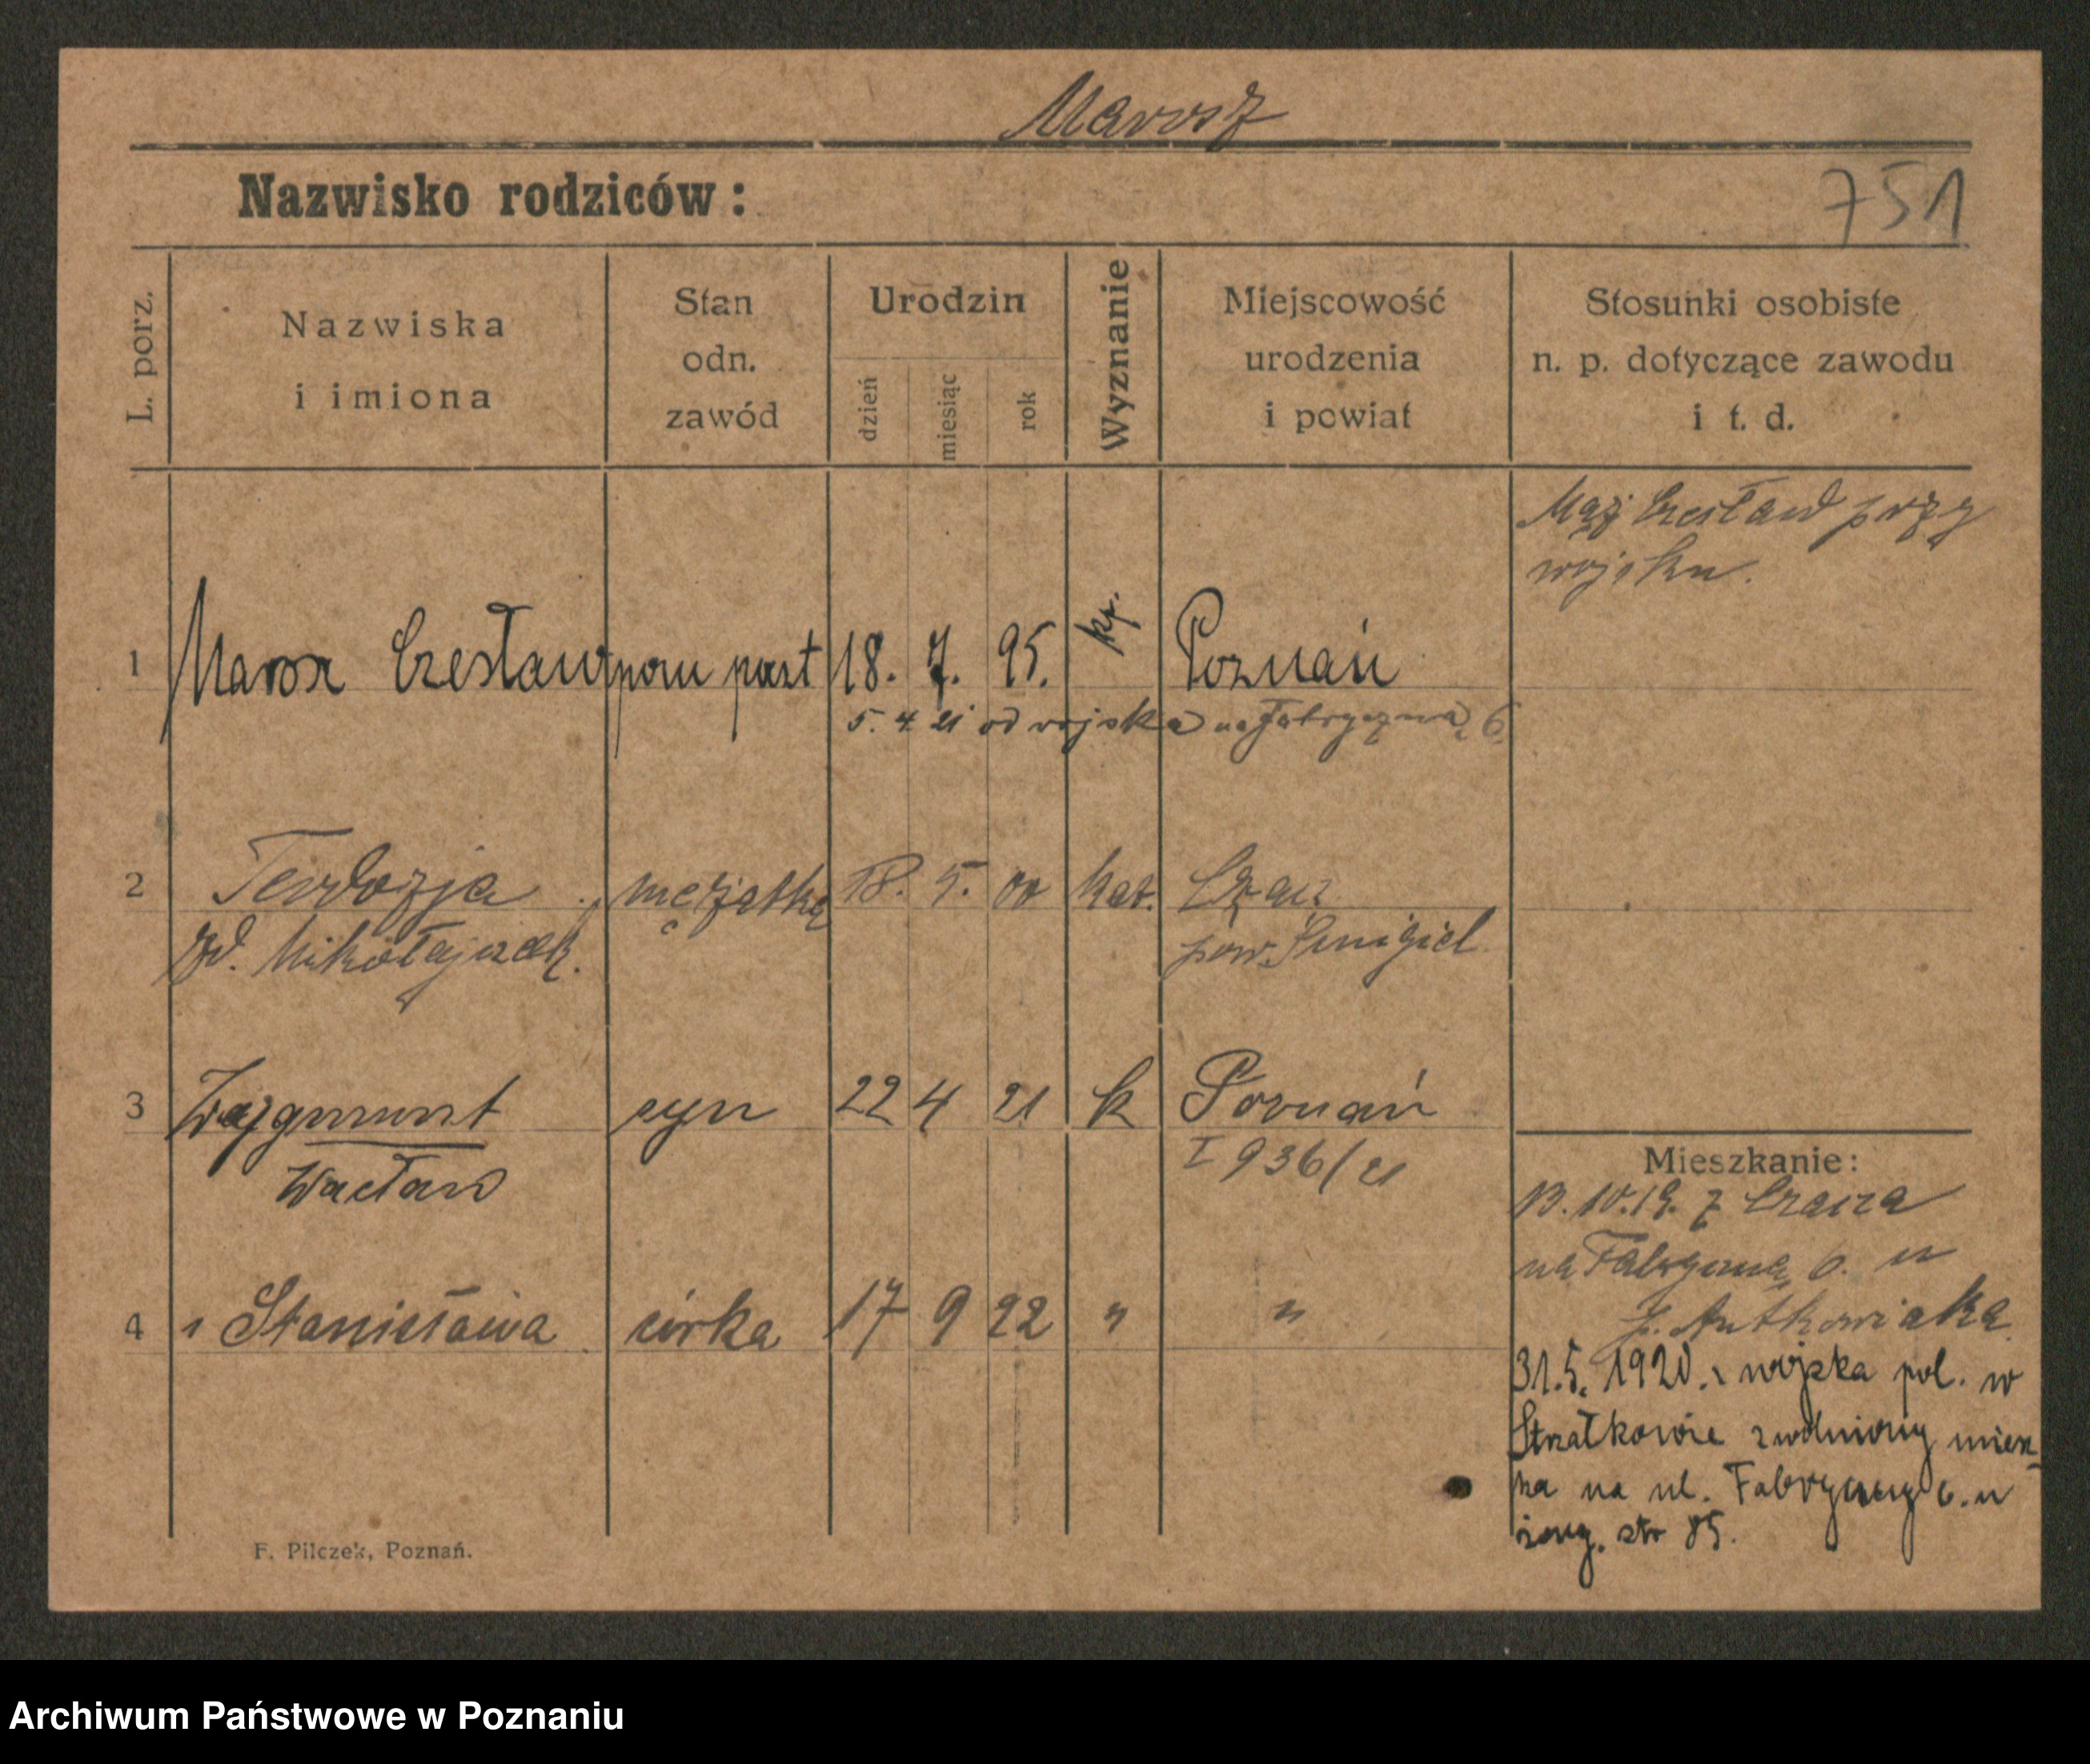 Marosz
Nazwisko rodziców:
751
L. porz.
Nazwiska
i imiona
Stan
odn.
zawód
Urodzin
dzień
miesiąc
rok
Wyznanie
Miejscowość
urodzenia
i powiat
Stosunki osobiste
n. p. dotyczące zawodu
i t. d.
Mąż Czesław przy
wojsku.
1 Marosz Czesław pom post 18. 7. 95. Poznań
5. 4. 21 od wojska na Fabryczną 6
2 Teodozja mężatka 18. 5. 00 kat. Czacz
Mikołajczak. pow. Śmigiel
3 Zygmunt syn 22 4 21 k Poznań
Wacław I 936/21
4 " Stanisława córka 17 9 22 " "
Mieszkanie:
13.10.19. z Czacza
na Fabryczną 6. u
p. Antkowiaka
31.5.1920. z wojska pol. w
Strzałkowie zwolniony miesz
ka na ul. Fabrycznej 6. u
żony. str 85.
F. Pilczek, Poznań.
Archiwum Państwowe w Poznaniu